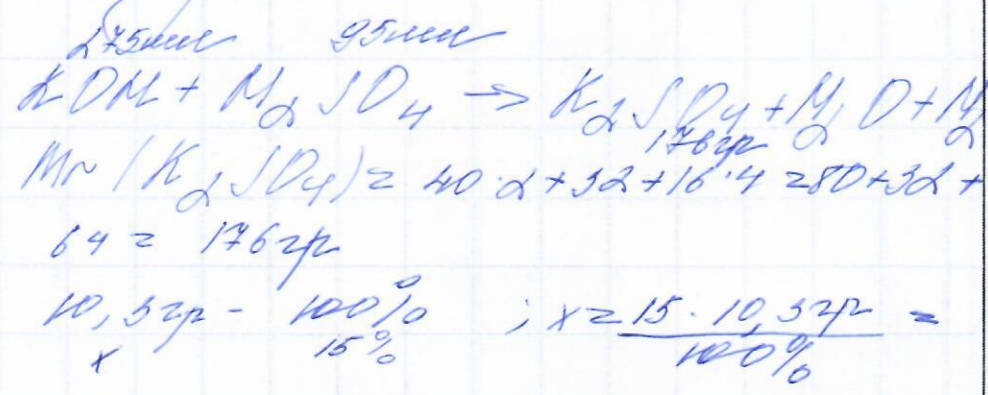 275мл 95мл
KOH + H₂SO₄ → K₂SO₄ + H₂O + H₂
176гр
Mr (K₂SO₄) = 40·2 + 32 + 16·4 = 80 + 32 +
64 = 176гр
10,5гр - 100% ; x = 15 · 10,5гр =
x 15% 100%